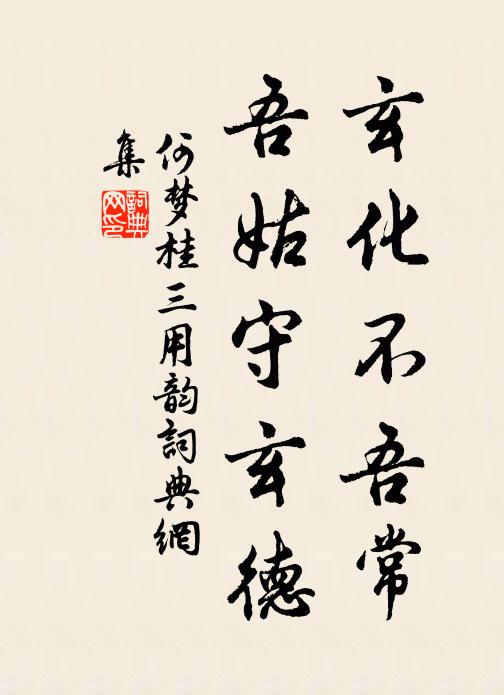 玄化不吾常
吾姑守玄德
何梦桂三用韵詞典網
集
詞典网印